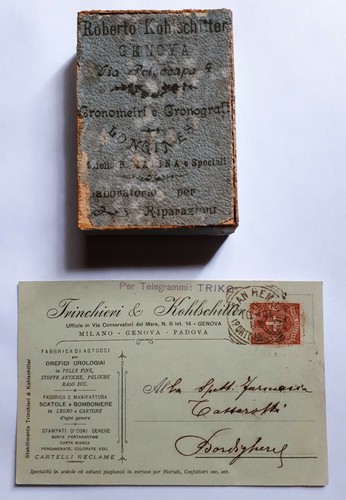 Roberto Kohlschitter
GENOVA
Via
Cronometri e Cronografi
LONGINES
della R. MARINA e Speciali
Laboratorio per
Riparazioni
Per Telegrammi: TRIKO
Trinchieri & Kohlschitter
Ufficio in Via Conservatori del Mare, N. 9 int. 14 - GENOVA
MILANO - GENOVA - PADOVA
SAN REMO
FABBRICA DI ASTUCCI
per
OREFICI OROLOGIAI
in PELLE FINE,
STOFFE ANTICHE, PELUCHE
RASO ECC.
FABBRICA E MANIFATTURA
SCATOLE e BOMBONIERE
in LEGNO e CARTONE
d'ogni genere
STAMPATI D'OGNI GENERE
BUSTE PORTACARTINE
CARTA BIANCA
PERGAMENATE, COLORATE ECC.
CARTELLI RÉCLAME
Stabilimento Trinchieri & Kohlschitter
Alla Spett. Farmacia
Bordighera
Specialità in scatole ed astucci pieghevoli in cartone per Fioristi, Confettieri ecc. ecc.